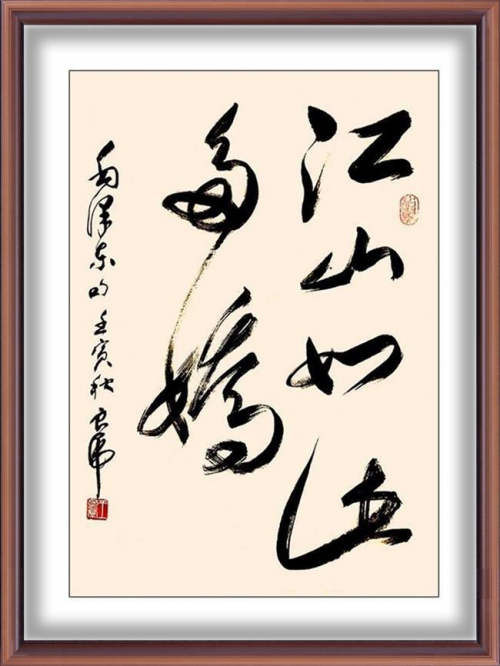 江山如此
多嬌
毛泽东句壬寅秋